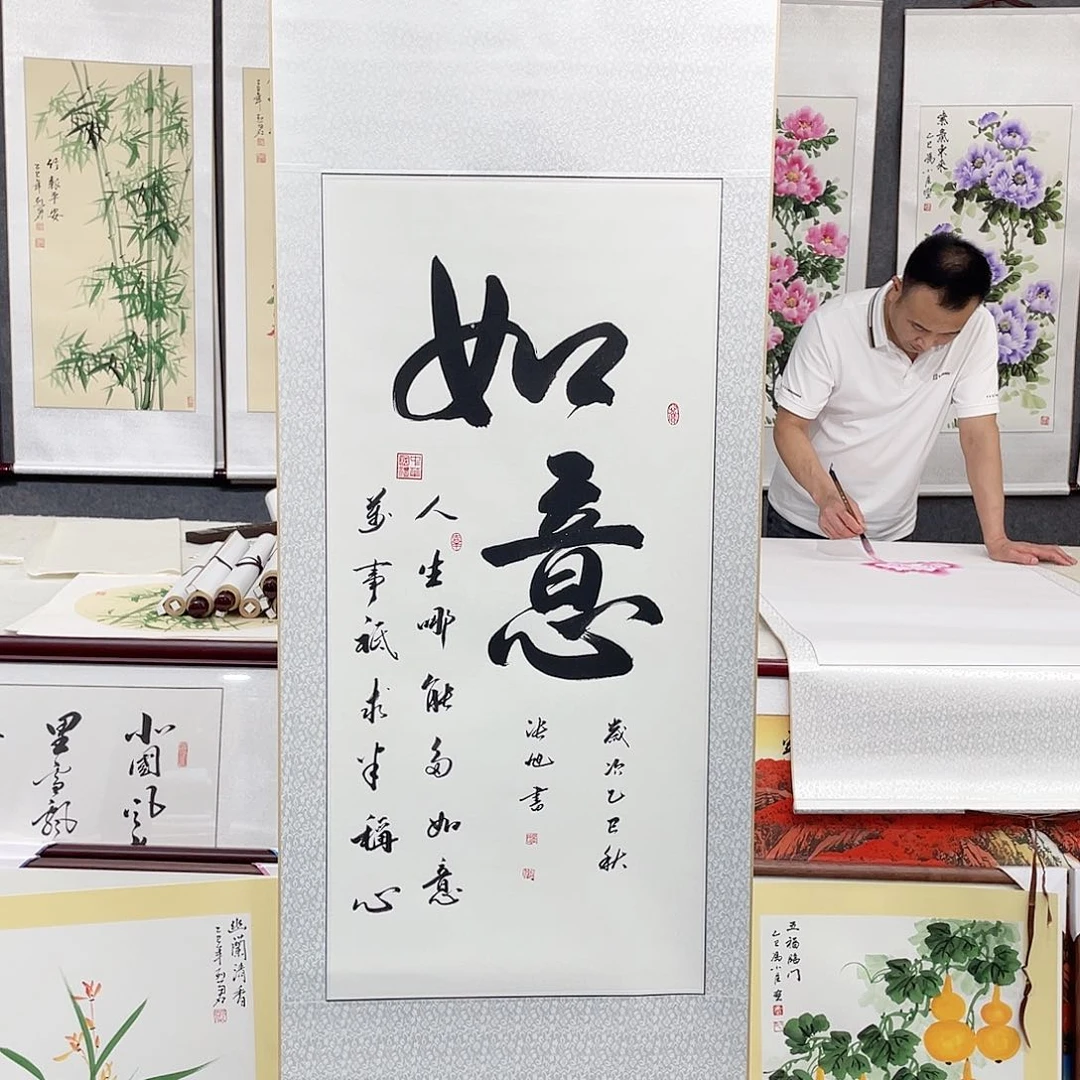 如意
人生哪能多如意
萬事祇求半稱心
歲次乙巳秋
张旭書
竹報平安
乙巳年
紫氣東來
乙巳
北國風
里雪飄
幽蘭清香
乙巳年
五福臨门
乙巳